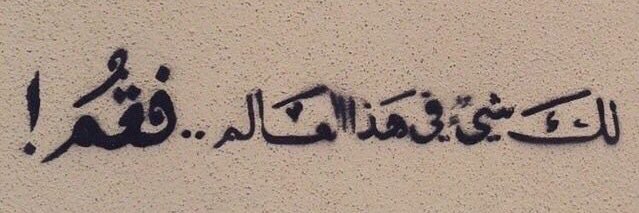 لك شيءٌ في هَذا العَالم .. فقُمْ !